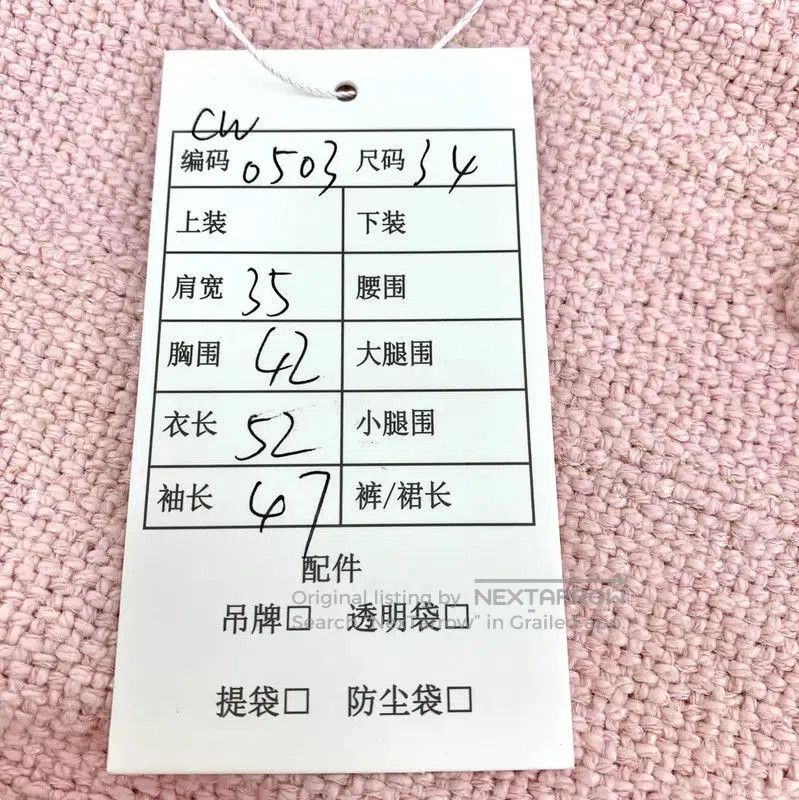 CW
编码 0503 尺码 34
上装 下装
肩宽 35 腰围
胸围 42 大腿围
衣长 52 小腿围
袖长 47 裤/裙长
配件
Original listing by NEXTARROW
吊牌□ 透明袋□
Search "NexTarrow" in Grailed app
提袋□ 防尘袋□